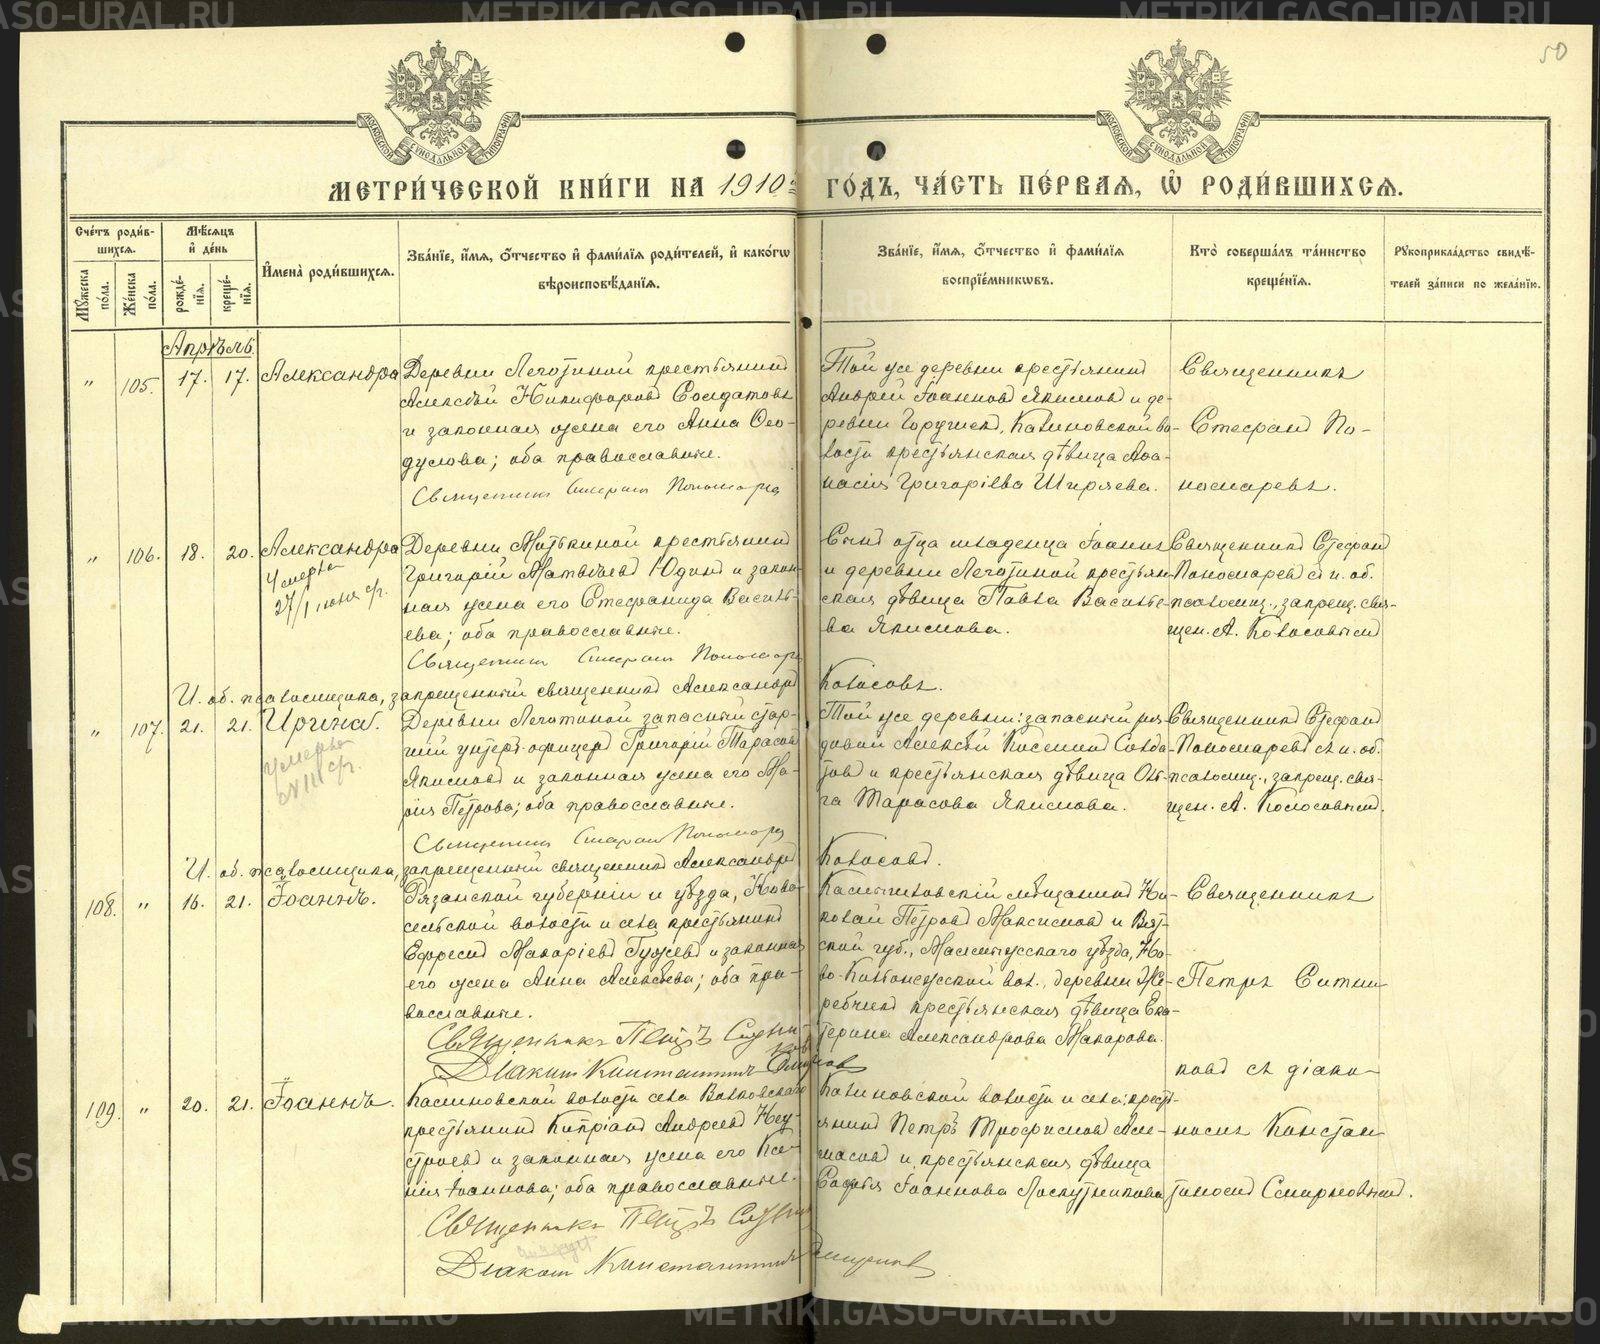 50
МЕТРИ́ЧЕСКОЙ КНИ́ГИ НА 1910 й ГО́ДЪ, ЧА́СТЬ ПЕ́РВАЯ, Ѡ҆ РОДИ́ВШИХСЯ.
Сче́тъ роди́вшихся.
Мꙋ́жеска по́ла.
Же́нска по́ла.
Мѣ́сяцъ и҆ де́нь
рожде́нїя.
креще́нїя.
И҆мена̀ роди́вшихся.
Зва́нїе, и҆́мя, ѻ҆́тчество и҆ фами́лїя роди́телей, и҆ како́гѡ
вѣроисповѣ́данїя.
Зва́нїе, и҆́мя, ѻ҆́тчество и҆ фами́лїя
воспрїе́мникѡвъ.
Кто̀ соверша́лъ та́инство
креще́нїя.
Рꙋкоприкла́дство свидѣ́-
телей за́писи по жела́нїю.
Апрѣль.
" 105. 17. 17. Александра
Деревни Леготиной крестьянинъ
Алексѣй Никифоровъ Солдатовъ
и законная жена его Анна Ѳео-
дулова; оба православные.
Священникъ Стефанъ Пономарев
Той же деревни крестьянинъ
Андрей Іоанновъ Якимовъ и де-
ревни Горушекъ, Калиновской во-
лости крестьянская дѣвица Афа-
насія Григоріева Ширяева.
Священникъ
Стефанъ По-
номаревъ.
" 106. 18. 20. Александра
Умерла
27/I июня с/г.
Деревни Мотькиной крестьянинъ
Григорій Матвѣевъ Юдинъ и закон-
ная жена его Стефанида Василь-
ева; оба православные.
Священникъ Стефанъ Пономарев
Сынъ отца младенца Іоаннъ
и деревни Леготиной крестьян-
ская дѣвица Павла Василье-
ва Якимова.
Священникъ Стефанъ
Пономаревъ съ и. об.
псаломщ., запрещ. свя-
щен. А. Колосовымъ
И. об. псаломщика, запрещенный священникъ Александръ Колосовъ.
" 107. 21. 21. Ирина.
Умерла
VIII с/г.
Деревни Леготиной запасный стар-
шій унтеръ-офицеръ Григорій Тарасовъ
Якимовъ и законная жена его Ма-
рія Петрова; оба православные.
Священникъ Стефанъ Пономарев
Той же деревни: запасный ря-
довой Алексѣй Косьминъ Солда-
товъ и крестьянская дѣвица Оль-
га Тарасова Якимова.
Священникъ Стефанъ
Пономаревъ съ и. об.
псаломщ., запрещ. свя-
щен. А. Колосовымъ.
И. об. псаломщика, запрещенный священникъ Александръ Колосовъ.
108. " 16. 21. Іоаннъ.
Рязанской губерніи и уѣзда, Ново-
сельской волости и села крестьянинъ
Ефремъ Макаріевъ Гужевъ и законная
его жена Анна Алексѣева; оба пра-
вославные.
Священникъ Петръ Ситни-
ковъ
Діаконъ Константинъ Смирнов
Камышловскій мѣщанинъ Ни-
колай Петровъ Максимовъ и Вят-
ской губ., Малмыжскаго уѣзда, Но-
во-
деревни Же-
ребчихъ крестьянская дѣвица Ека-
терина Александрова Макарова.
Священникъ
Петръ Ситни-
ковъ съ діако-
номъ Констан-
тиномъ Смирновымъ.
109. " 20. 21. Іоаннъ.
Калиновской волости села Волковскаго
крестьянинъ Кипріанъ Андреевъ Неу-
строевъ и законная жена его Ксе-
нія Іоаннова; оба православные.
Священникъ Петръ Ситни
Діаконъ Константинъ Смирнов
Калиновской волости и села: кресть-
янинъ Петръ Трофимовъ Ал-
масовъ и крестьянская дѣвица
Софья Іоаннова Лоскутникова
METRIKI.GASO-URAL.RU